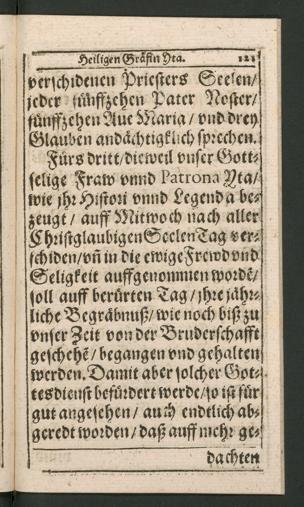 Heiligen Gräfin Yta. 121
verschidenen Priesters Seelen/
jeder fünffzehen Pater Noster/
fünffzehen Aue Maria/ vnd drey
Glauben andächtigklich sprechen.
Fürs dritt/ dieweil vnser Gott⸗
selige Fraw vnnd Patrona Yta/
wie jhr Histori vnnd Legenda be⸗
zeugt/ auff Mitwoch nach aller
Christglaubigen Seelen Tag ver⸗
schiden/ vn̄ in die ewige Frewd vnd
Seligkeit auffgenommen wordē/
soll auff berürten Tag/ jhre jähr⸗
liche Begräbnuß/ wie noch biß zu
vnser Zeit von der Bruderschafft
geschehē/ begangen vnd gehalten
werden. Damit aber solcher Got⸗
tesdienst befürdert werde/ so ist für
gut angesehen/ auch endtlich ab⸗
geredt worden/ daß auff mehr ge⸗
dachten